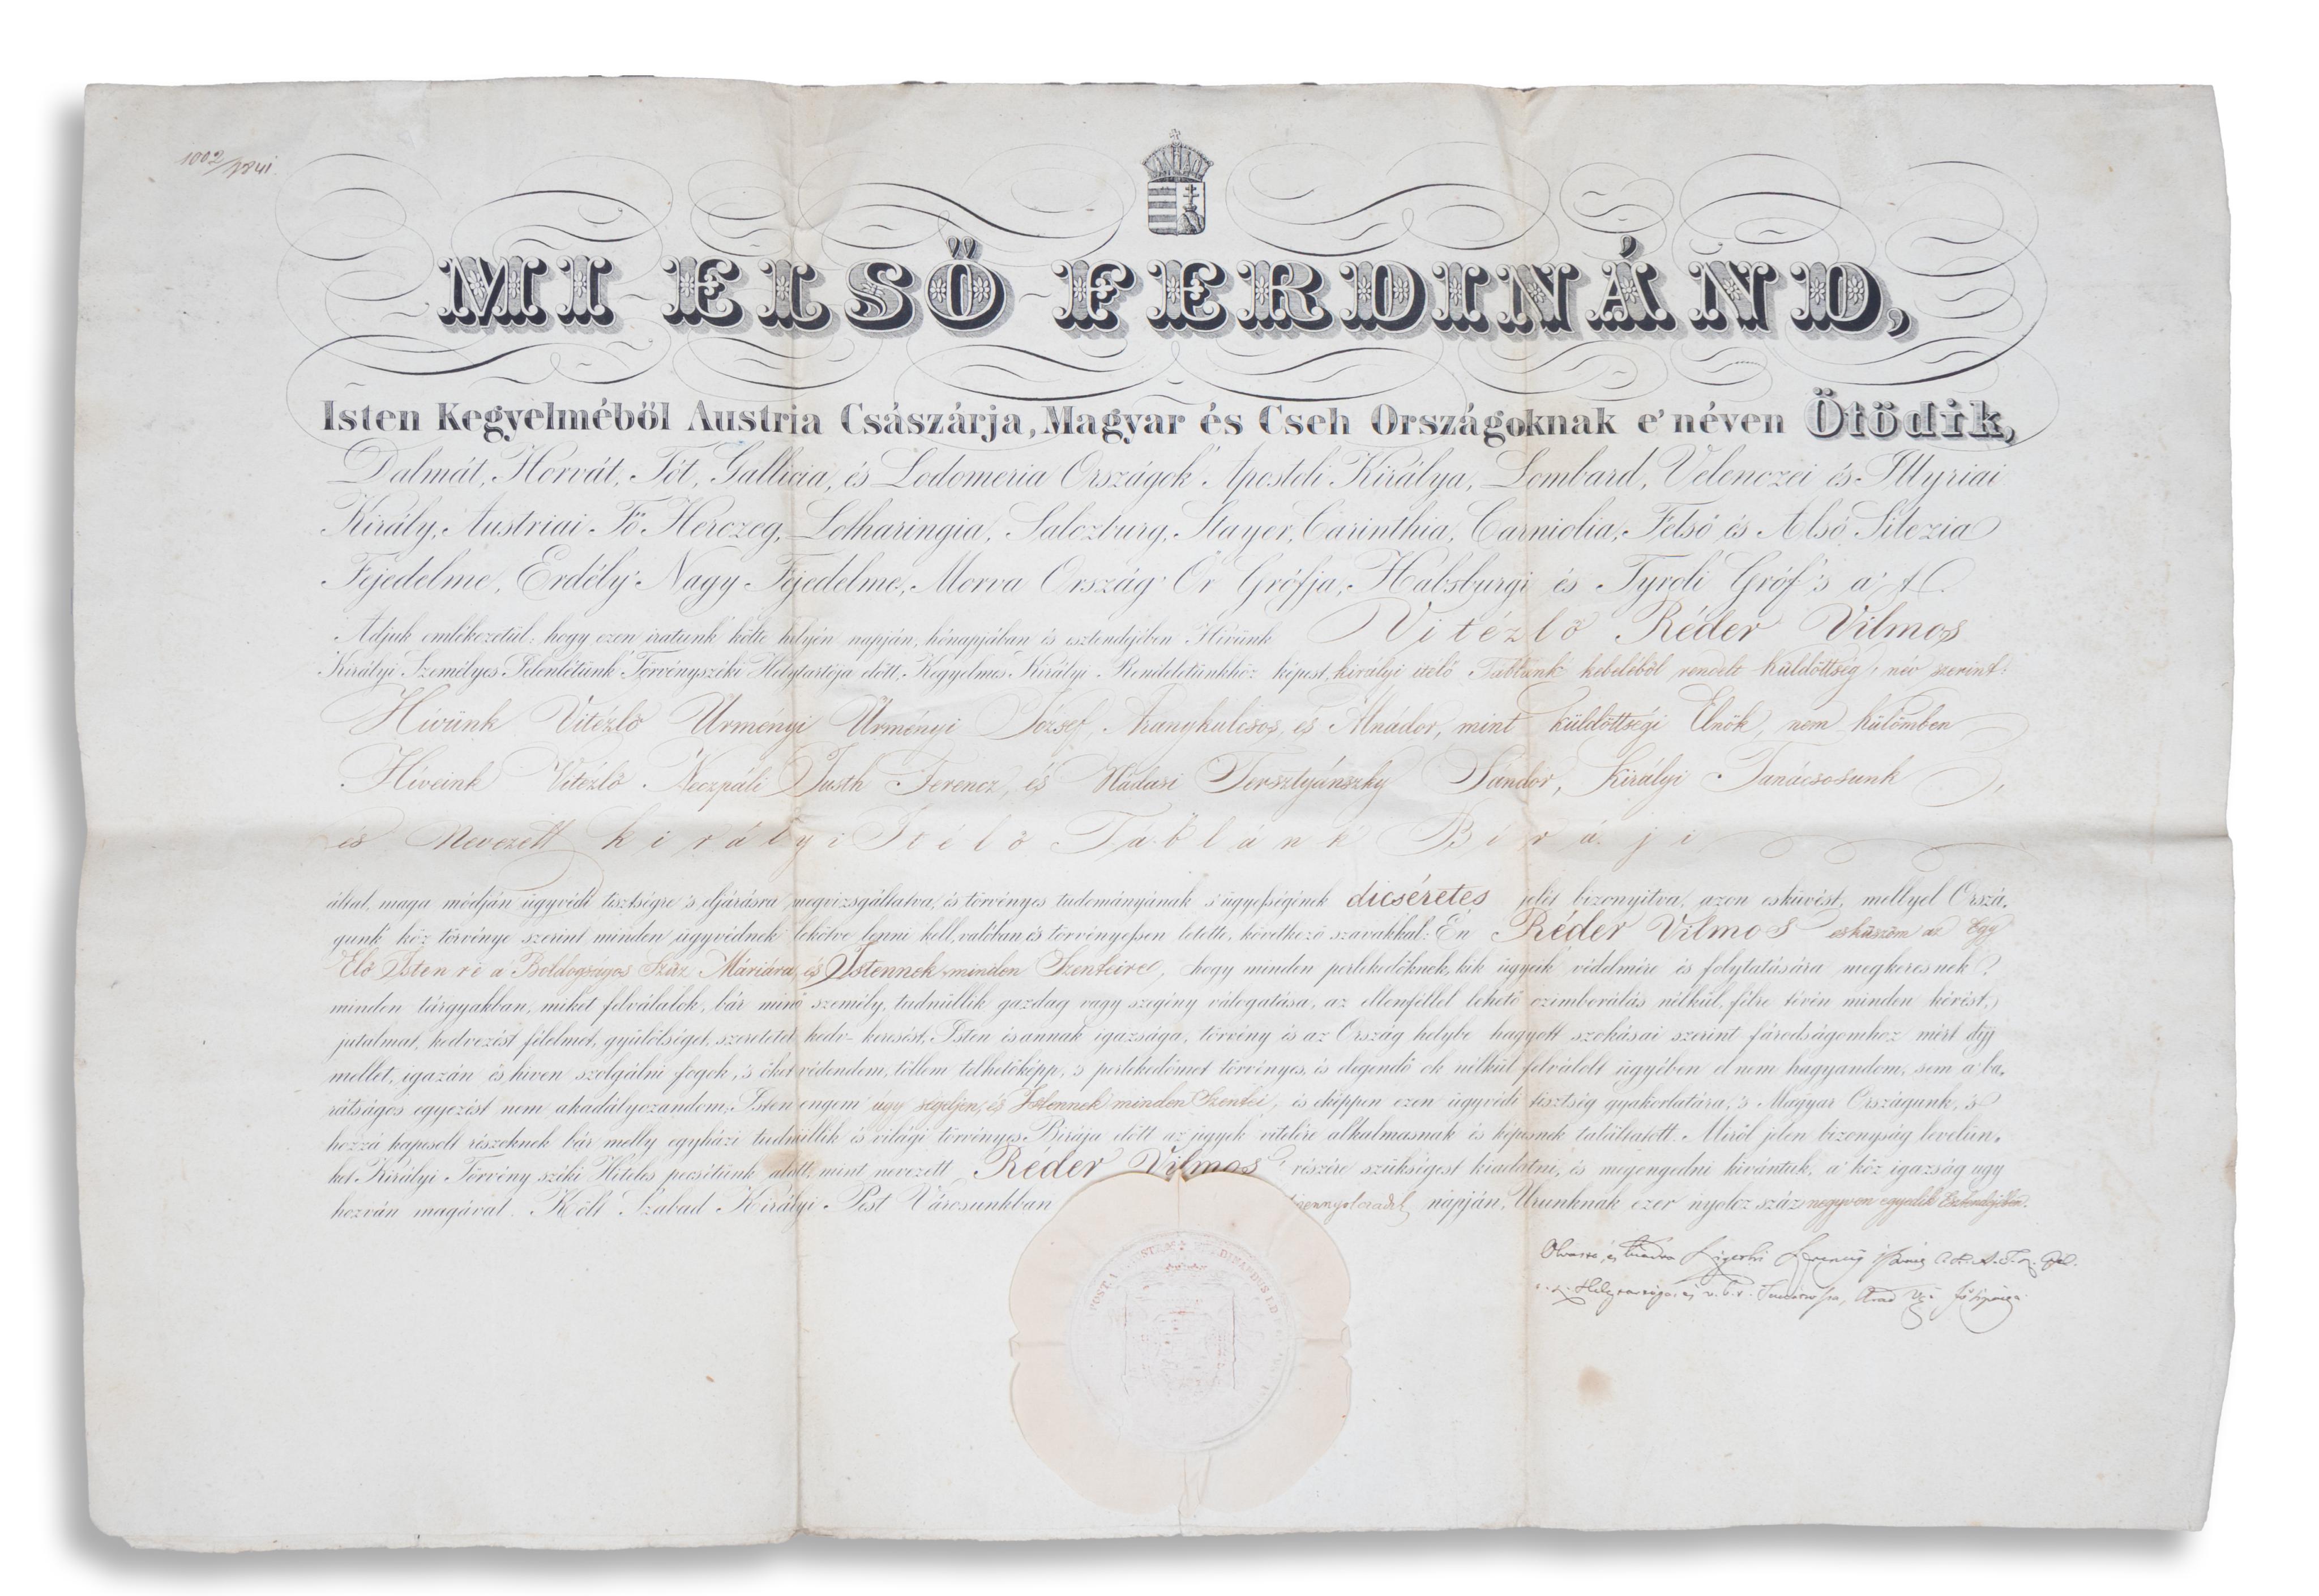 1002/1841.
MI ELSŐ FERDINÁND,
Isten Kegyelméböl Austria Császárja, Magyar és Cseh Országoknak e' néven Ötödik,
Dalmát, Horvát, Tót, Gallicia, és Lodomeria Országok' Apostoli Királya, Lombard, Velenczei és Illyriai
Király, Austriai Fő Herczeg, Lotharingia, Salczburg, Stayer, Carinthia, Carniolia, Felső és Alsó Silezia
Fejedelme, Erdély' Nagy Fejedelme, Morva Ország' Őr Grófja, Habsburgi és Tyroli Gróf 's a' t.
Adjuk emlékezetül: hogy ezen iratunk' költe helyén napján, hónapjában és esztendejében Hívünk Vitézlő Réder Vilmos
Királyi Személyes Jelenlétünk' Törvényszéki Helytartója előtt, Kegyelmes Királyi Rendeletünkhöz képest, királyi itélő Táblánk' kebeléből rendelt küldöttség, név szerint:
Hívünk Vitézlő Ürményi Ürményi József, Aranykulcsos, és Alnádor, mint küldöttségi Elnök, nem külömben
Híveink Vitézlő Neczpáli Justh Ferencz, és Nádasi Tersztyánszky Sándor, Királyi Tanácsosunk,
és Nevezett királyi Itélő Táblánk Biráji
által, maga módján ügyvédi tisztségre 's eljárásra megvizsgáltatva, és törvényes tudományának 's ügyességének dicséretes jelét bizonyítva, azon esküvést, mellyel Orszá-
gunk' köz törvénye szerint minden ügyvédnek lekötve lenni kell, valóban és törvényessen letette, következő szavakkal: Én Réder Vilmos esküszöm az Egy
Elő Istenre a' Boldogságos Szűz Máriára, és Istennek minden Szenteire, hogy minden perlekedőknek, kik ügyeik' védelmére és folytatására megkeresnek
minden tárgyakban, miket felválalok, bár minő személy, tudniillik gazdag vagy szegény válogatása, az ellenféllel lehető czimborálás nélkül, félre tévén minden kérést,
jutalmat, kedvezést félelmet, gyülölséget, szeretetet kedv-keresést, Isten és annak igazsága, törvény és az Ország helybe hagyott szokásai szerint fáradságomhoz mért díj
mellet, igazán és híven szolgálni fogok, 's őket védendem, töllem telhetőképp, 's perlekedőmet törvényes, és elegendő ok nélkül felválolt ügyében el nem hagyandom, sem a' ba-
rátságos egyezést nem akadályozandom, Isten engem úgy segéljen, és Istennek minden Szentei, és eképpen ezen ügyvédi tisztség gyakorlatára, 's Magyar Országunk, 's
hozzá kapcsolt részeknek bár melly egyházi tudniillik és világi törvényes Birája előtt az ügyek vitelére alkalmasnak és képesnek találtatott. Miről jelen bizonyság levelün-
ket Királyi Törvény széki Hiteles pecsétünk alatt, mint nevezett Réder Vilmos részére szükségest kiadatni, és megengedni kivántuk, a' köz igazság úgy
hozván magával. Költ Szabad Királyi Pest Városunkban napján, Urunknak ezer nyolcz száz negyven egyedik Esztendejében.
Olvasta, és kiadta